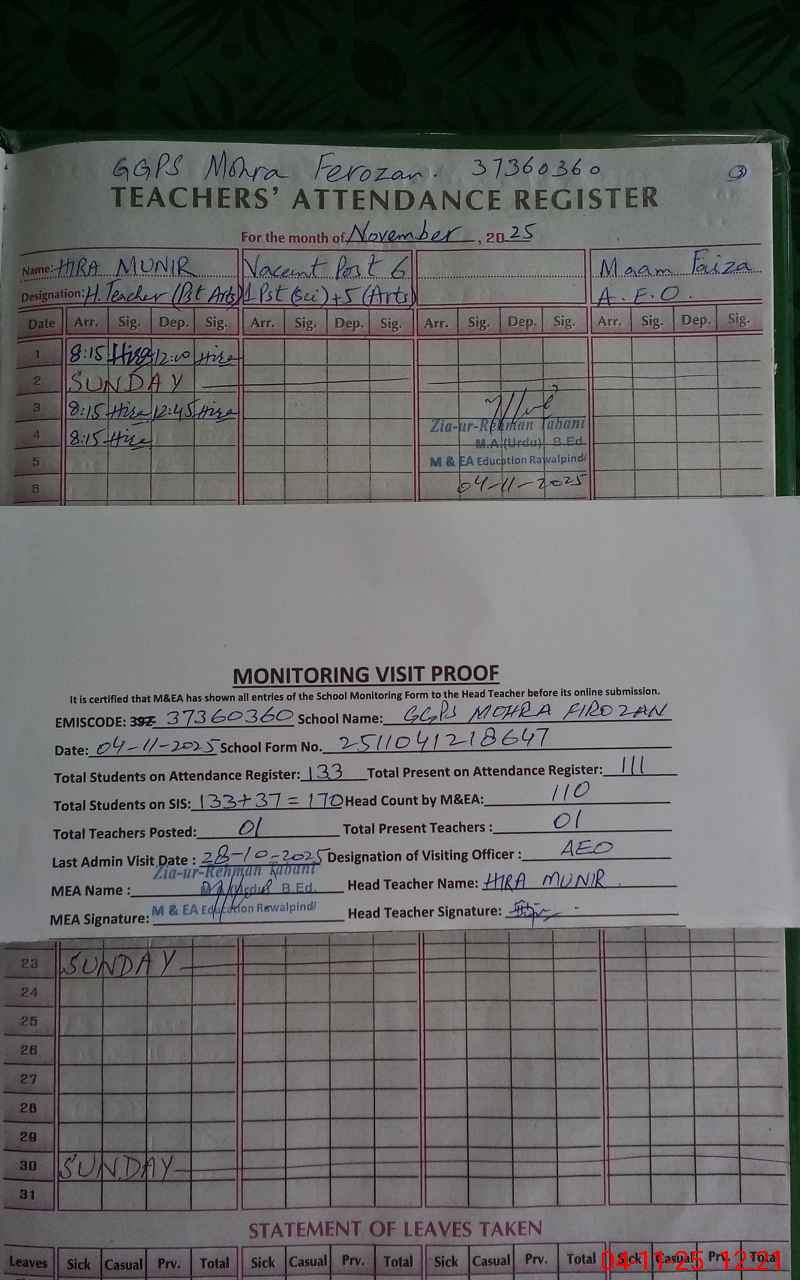 GGPS Mohra Ferozan. 37360360 3
TEACHERS' ATTENDANCE REGISTER
For the month of November, 2025
Name: HIRA MUNIR Vacent Post 6 Maam Faiza
Designation: H.Teacher (Pst Arts) 1 Pst (Sci) + 5 (Arts) A.E.O.
Date Arr. Sig. Dep. Sig. Arr. Sig. Dep. Sig. Arr. Sig. Dep. Sig. Arr. Sig. Dep. Sig.
1 8:15 Hira 12:00 Hira
2 SUNDAY
3 8:15 Hira 12:45 Hira
Zia-ur-Rehman Tabani
4 8:15 Hira M.A.(Urdu) B.Ed.
5 M & EA Education Rawalpindi
6 04-11-2025
MONITORING VISIT PROOF
It is certified that M&EA has shown all entries of the School Monitoring Form to the Head Teacher before its online submission.
EMISCODE: 37360360 School Name: GGPS MOHRA FIROZAN
Date: 04-11-2025 School Form No. 2511041218647
Total Students on Attendance Register: 133 Total Present on Attendance Register: 111
Total Students on SIS: 133+37=170 Head Count by M&EA: 110
Total Teachers Posted: 01 Total Present Teachers : 01
Last Admin Visit Date : 28-10-2025 Designation of Visiting Officer : AEO
Zia-ur-Rehman Tabani
MEA Name : B.Ed. Head Teacher Name: HIRA MUNIR
MEA Signature: M & EA Education Rawalpindi Head Teacher Signature:
23 SUNDAY
24
25
26
27
28
29
30 SUNDAY
31
STATEMENT OF LEAVES TAKEN
Leaves Sick Casual Prv. Total Sick Casual Prv. Total Sick Casual Prv. Total Sick Casual Prv. Total
04-11-25 12:21